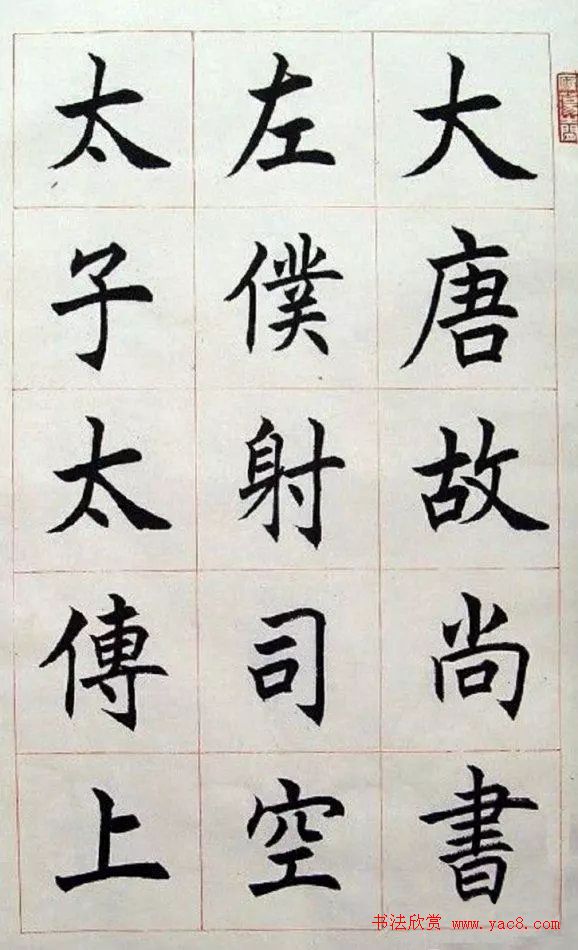 大唐故尚書
左僕射司空
太子太傳上
书法欣赏 www.yac8.com